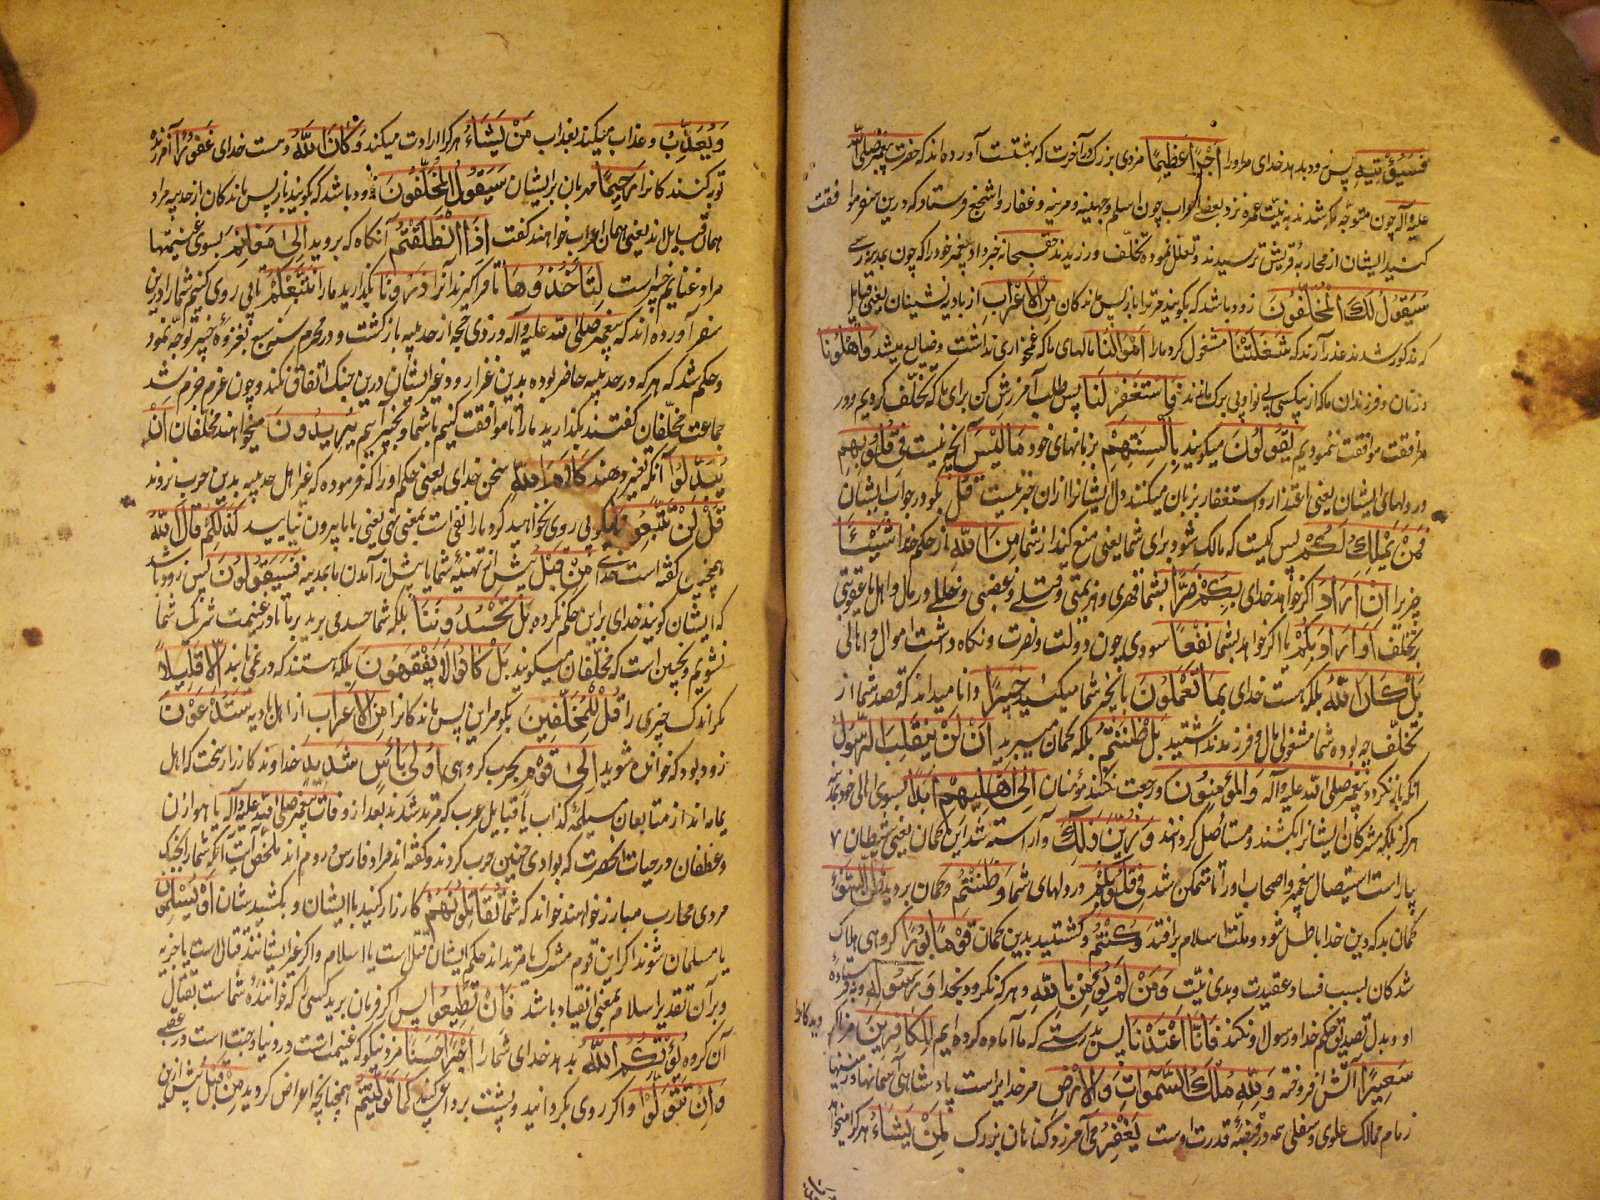 فَسَيُؤْتِيهِ پس زود بدهد خدای مر او را أَجْرًا عَظِيمًا مزدی بزرک در آخرت که بهشتست آورده‌اند که حضرت پیغمبر صلی الله
علیه و آله چون متوجه مکه شدند به نیت عمره نزد بعضی اعراب چون اسلم و جهینه و مزینه و غفار و اشجع فرستاد که درین سفر موافقت
کنید ایشان از محاربه قریش ترسیدند و تعلل نموده تخلف ورزیدند حق سبحانه خبر داد پیغمبر خود را که چون بمدینه رسی
سَيَقُولُ لَكَ الْمُخَلَّفُونَ زود باشد که بکویند مر ترا باز پس ماندکان مِنَ الْأَعْرَابِ از بادیه نشینان یعنی قبایل
که مذکور شدند عذر آرند که شَغَلَتْنَا مشغول کرد ما را أَمْوَالُنَا مالهای ما که غمخواری نداشت و ضایع میشد وَأَهْلُونَا
و زنان و فرزندان ما که از بیکسی بی نوا و بی برک ماندند فَاسْتَغْفِرْ لَنَا پس طلب آمرزش کن برای ما که تخلف کردیم و در
مرافقت موافقت ننمودیم يَقُولُونَ میکویند بِأَلْسِنَتِهِمْ بزبانهای خود مَا لَيْسَ آنچه نیست فِي قُلُوبِهِمْ
در دلهای ایشان یعنی اعتذار و استغفار بزبان میکنند و دل ایشانرا از ان خبر نیست قُلْ بکو در جواب ایشان
فَمَنْ يَمْلِكُ لَكُمْ پس کیست که مالک شود برای شما یعنی منع کند از شما مِنَ اللَّهِ از حکم خدا شَيْئًا
چیزیرا إِنْ أَرَادَ اکر خواهد خدای بِكُمْ ضَرًّا بشما قهری و هزیمتی و قتلی و خللی در مال و اهل یا عقوبتی
بر تخلف أَوْ أَرَادَ بِكُمْ یا اکر خواهد بشما نَفْعًا سودی چون دولت و نصرت و نکاه داشت اموال و اهالی
بَلْ كَانَ اللَّهُ بلکه هست خدای بِمَا تَعْمَلُونَ بآنچه شما میکنید خَبِيرًا دانا میداند که قصد شما از
تخلف چه بوده شما مشغولی مال و فرزند نداشتید بَلْ ظَنَنْتُمْ بلکه کمان میبرید أَنْ لَنْ يَنْقَلِبَ الرَّسُولُ
آنکه باز نکردد پیغمبر صلی الله علیه و آله وَالْمُؤْمِنُونَ و رجعت نکنند مؤمنان إِلَى أَهْلِيهِمْ أَبَدًا بسوی اهالی خود
هرکز بلکه مشرکان ایشانرا بکشند و مستأصل کردانند وَزُيِّنَ ذَلِكَ و آراسته شد این کمان یعنی شیطان
بیاراست استیصال پیغمبر و اصحاب او را تا متمکن شد فِي قُلُوبِكُمْ در دلهای شما وَظَنَنْتُمْ و کمان بردید ظَنَّ السَّوْءِ
کمان بد که دین خدا باطل شود و ملت اسلام برافتد وَكُنْتُمْ و کشتید بدین کمان قَوْمًا بُورًا کروهی هلاک
شدکان بسبب فساد عقیدت و بدی نیت وَمَنْ لَمْ يُؤْمِنْ بِاللَّهِ و هر که نکرود بخدا وَرَسُولِهِ و بفرستاده
او و بدل تصدیق حکم خدا و رسول او نکند فَإِنَّا أَعْتَدْنَا پس بدرستی که ما آماده کرده‌ایم لِلْكَافِرِينَ مر ناکرویدکانرا
سَعِيرًا آتش افروخته وَلِلَّهِ مُلْكُ السَّمَوَاتِ وَالْأَرْضِ مر خدایراست پادشاهی آسمانها و زمینها
زمام ممالک علوی و سفلی همه در قبضه قدرت اوست يَغْفِرُ می‌آمرزد کناهان بزرک لِمَنْ يَشَاءُ هر کرا میخواهد
وَيُعَذِّبُ و عذاب میکند بعذاب مَنْ يَشَاءُ هر کرا ارادت میکند وَكَانَ اللَّهُ و هست خدای غَفُورًا آمرزنده
توبه کنندکانرا رَحِيمًا مهربان بر ایشان سَيَقُولُ الْمُخَلَّفُونَ زود باشد که بکویند باز پس ماندکان از حدیبیه مراد
همان قبایل‌اند یعنی همان اعراب خواهند کفت إِذَا انْطَلَقْتُمْ آنکاه که بروید إِلَى مَغَانِمَ بسوی غنیمتها
مراد غنایم خیبر است لِتَأْخُذُوهَا تا فرا کیرید آنرا ذَرُونَا بکذارید ما را نَتَّبِعْكُمْ تا پی روی کنیم شما را درین
سفر آورده‌اند که پیغمبر صلی الله علیه و آله در ذی حجه از حدیبیه بازکشت و در محرم سنه سبع بغزوه خیبر توجه نمود
و حکم شد که هر که در حدیبیه حاضر بوده بدین غزا رود و غیر ایشان درین جنک اتفاق نکند و چون عزم جزم شد
جماعت مخلفان کفتند بکذارید ما را تا موافقت کنیم با شما و بخیبر آییم يُرِيدُونَ میخواهند مخلفان أَنْ
يُبَدِّلُوا آنکه تغییر دهند كَلَامَ اللَّهِ سخن خدای یعنی حکم او را که فرموده که غیر اهل حدیبیه بدین حرب نروند
قُلْ لَنْ تَتَّبِعُونَا بکو پی روی نخواهید کرد ما را نفی است بمعنی نهی یعنی با ما بیرون نیایید كَذَلِكُمْ قَالَ اللَّهُ
همچنین کفته است خدای مِنْ قَبْلُ پیش از تهیه شما یا پیش از آمدن ما بمدینه فَسَيَقُولُونَ پس زود باشد
که ایشان کویند خدای براین حکم نکرده بَلْ تَحْسُدُونَنَا بلکه شما حسد می برید بر ما تا در غنیمت شریک شما
نشویم و نچنین است که مخلفان میکویند بَلْ كَانُوا لَا يَفْقَهُونَ بلکه هستند که در نمی‌یابند إِلَّا قَلِيلًا
مکر اندک چیزی را قُلْ لِلْمُخَلَّفِينَ بکو مر این پس ماندکانرا مِنَ الْأَعْرَابِ از اهل بادیه سَتُدْعَوْنَ
زود بود که خوانده شوید إِلَى قَوْمٍ بحرب کروهی أُولِي بَأْسٍ شَدِيدٍ خداوند کارزار سخت که اهل
یمامه‌اند از متابعان مسیلمه کذاب یا قبایل عرب که مرتد شدند بعد از وفات پیغمبر صلی الله علیه و آله یا هوازن
و غطفان در حیات آنحضرت که بوادی حنین حرب کردند و کفته‌اند مراد فارس و روم‌اند ملخص آنست که شما را بجنک
مردی محارب مبارز خواهند خواند که شما تُقَاتِلُونَهُمْ کارزار کنید با ایشان و بکشید شان أَوْ يُسْلِمُونَ
یا مسلمان شوند اکر این قوم مشرک یا مرتداند حکم ایشان قتل است یا اسلام و اکر غیر ایشانند قتال است یا جزیه
و برآن تقدیر اسلام بمعنی انقیاد باشد فَإِنْ تُطِيعُوا پس اکر فرمان برید کسی را که خواننده شماست بقتال
آن کروه يُؤْتِكُمُ اللَّهُ بدهد خدای شما را أَجْرًا حَسَنًا مزد نیکو که غنیمت است در دنیا و جنت است در عقبی
وَإِنْ تَتَوَلَّوْا و اکر روی بکردانید و پشت برداعی کنید كَمَا تَوَلَّيْتُمْ همچنانچه اعراض کردید مِنْ قَبْلُ پیش ازین